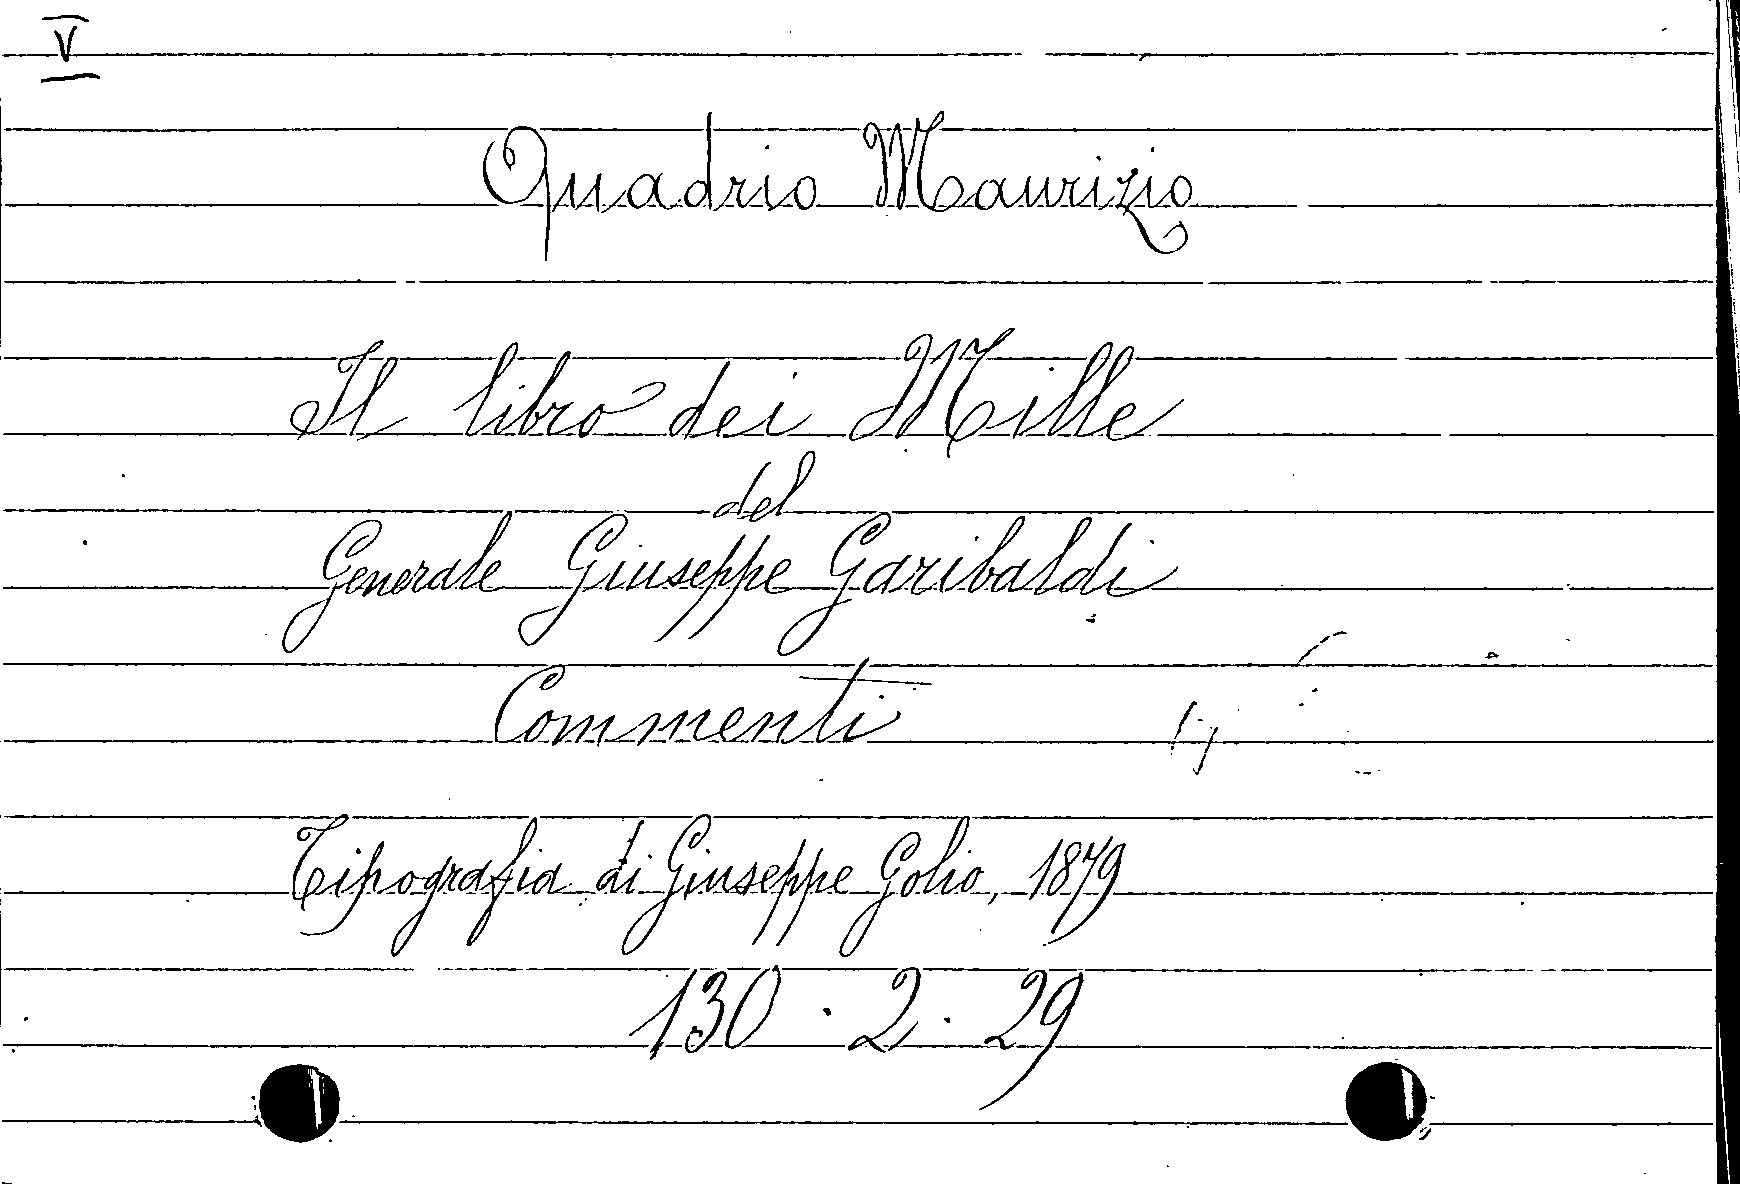 V
Quadrio Maurizio
Il libro dei Mille
del
Generale Giuseppe Garibaldi
Commenti
Tipografia di Giuseppe Golio, 1879
130 · 2 · 29